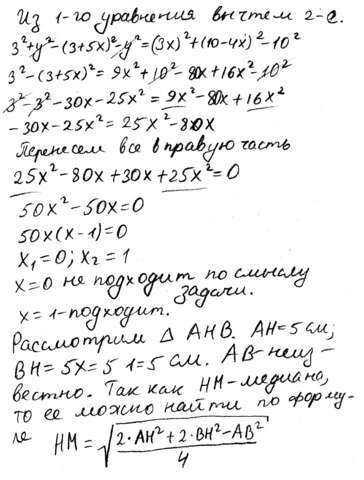 Из 1-го уравнения вычтем 2-е.
3²+y²-(3+5x)²-y²=(3x)²+(10-4x)²-10²
3²-(3+5x)²=9x²+10²-80x+16x²-10²
3²-3²-30x-25x²=9x²-80x+16x²
-30x-25x²=25x²-80x
Перенесем все в правую часть
25x²-80x+30x+25x²=0
50x²-50x=0
50x(x-1)=0
x₁=0; x₂=1
x=0 не подходит по смыслу
задачи.
x=1-подходит.
Рассмотрим △ AHB. AH=5 см;
BH=5x=5·1=5 см. AB-неиз-
вестно. Так как HM-медиана,
то ее можно найти по форму-
ле HM=√((2·AH²+2·BH²-AB²)/4)